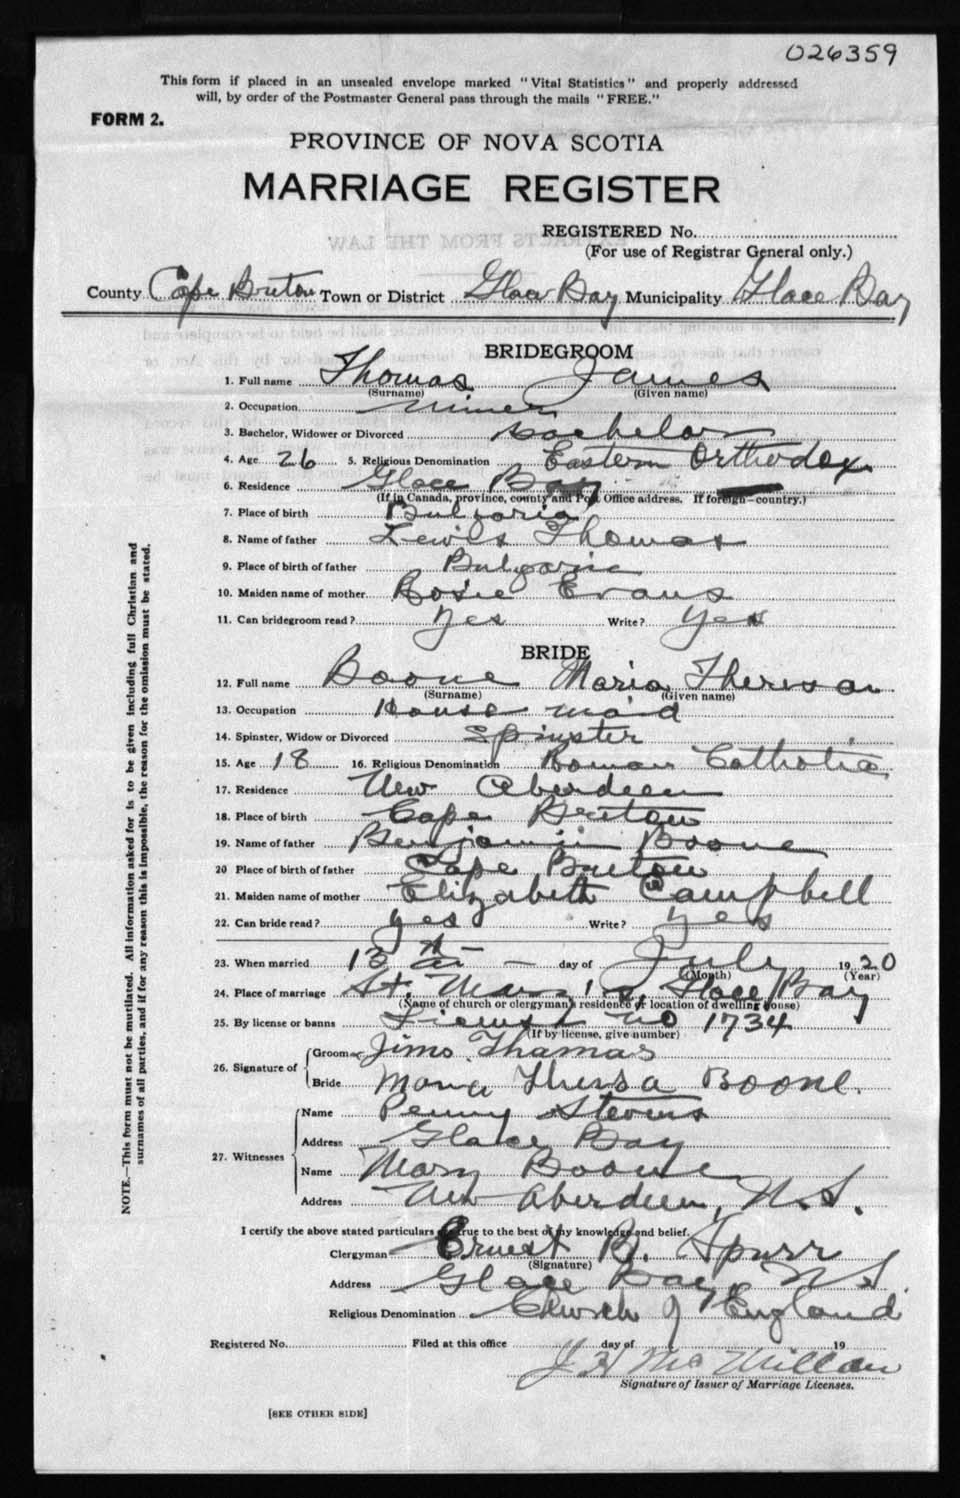 026359
This form if placed in an unsealed envelope marked "Vital Statistics" and properly addressed
will, by order of the Postmaster General pass through the mails "FREE."
FORM 2.
PROVINCE OF NOVA SCOTIA
MARRIAGE REGISTER
REGISTERED No.
(For use of Registrar General only.)
County Cape Breton Town or District Glace Bay Municipality Glace Bay
BRIDEGROOM
1. Full name Thomas James
(Surname) (Given name)
2. Occupation miner
3. Bachelor, Widower or Divorced bachelor
4. Age 26 5. Religious Denomination Eastern Orthodox
6. Residence Glace Bay
(If in Canada, province, county and Post Office address. If foreign—country.)
7. Place of birth Bulgaria
8. Name of father Lewis Thomas
9. Place of birth of father Bulgaria
10. Maiden name of mother Rosie Evans
11. Can bridegroom read? Yes Write? Yes
BRIDE
12. Full name Boone Maria Theresa
(Surname) (Given name)
13. Occupation House maid
14. Spinster, Widow or Divorced Spinster
15. Age 18 16. Religious Denomination Roman Catholic
17. Residence New Aberdeen
18. Place of birth Cape Breton
19. Name of father Benjamin Boone
20 Place of birth of father Cape Breton
21. Maiden name of mother Elizabeth Campbell
22. Can bride read? yes Write? yes
23. When married 13th day of July 1920
(Month) (Year)
24. Place of marriage St. Mary's, Glace Bay
(Name of church or clergyman's residence or location of dwelling house)
25. By license or banns License no 1734
(If by license, give number)
26. Signature of Groom Jims Thamas
Bride Maria Thersa Boone.
27. Witnesses Name Penny Stevens
Address Glace Bay
Name Mary Boone
Address New Aberdeen, N.S.
I certify the above stated particulars are true to the best of my knowledge and belief.
Clergyman Ernest B. Spurr
(Signature)
Address Glace Bay, N.S.
Religious Denomination Church of England
Registered No. Filed at this office day of 19
J H McMillan
Signature of Issuer of Marriage Licenses.
[SEE OTHER SIDE]
NOTE.—This form must not be mutilated. All information asked for is to be given including full Christian and
surnames of all parties, and if for any reason this is impossible, the reason for the omission must be stated.
EXTRACTS FROM THE LAW